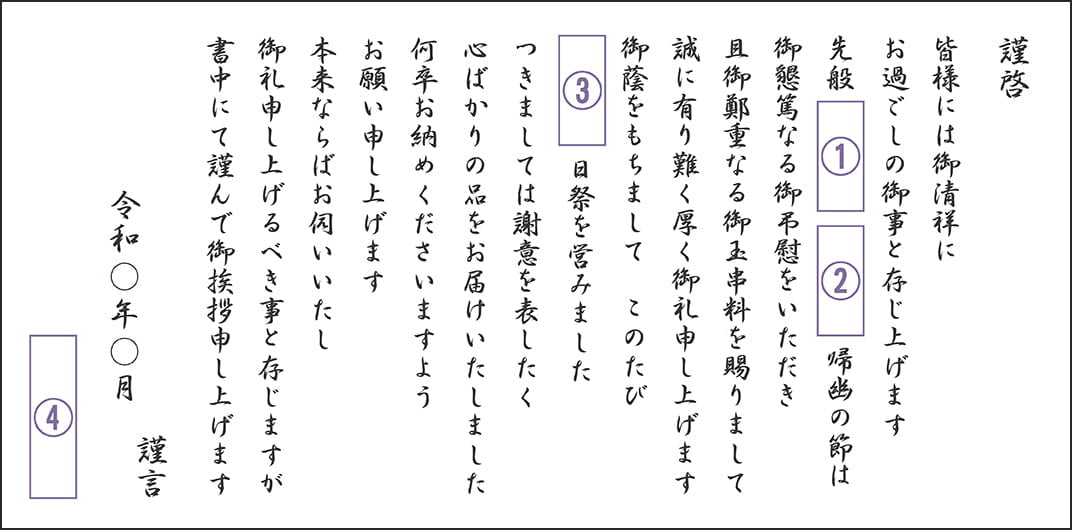 謹啓
皆様には御清祥に
お過ごしの御事と存じ上げます
先般 ① ② 帰幽の節は
御懇篤なる御弔慰をいただき
且御鄭重なる御玉串料を賜りまして
誠に有り難く厚く御礼申し上げます
御蔭をもちまして このたび
③ 日祭を営みました
つきましては謝意を表したく
心ばかりの品をお届けいたしました
何卒お納めくださいますよう
お願い申し上げます
本来ならばお伺いいたし
御礼申し上げるべき事と存じますが
書中にて謹んで御挨拶申し上げます
謹言
令和〇年〇月
④